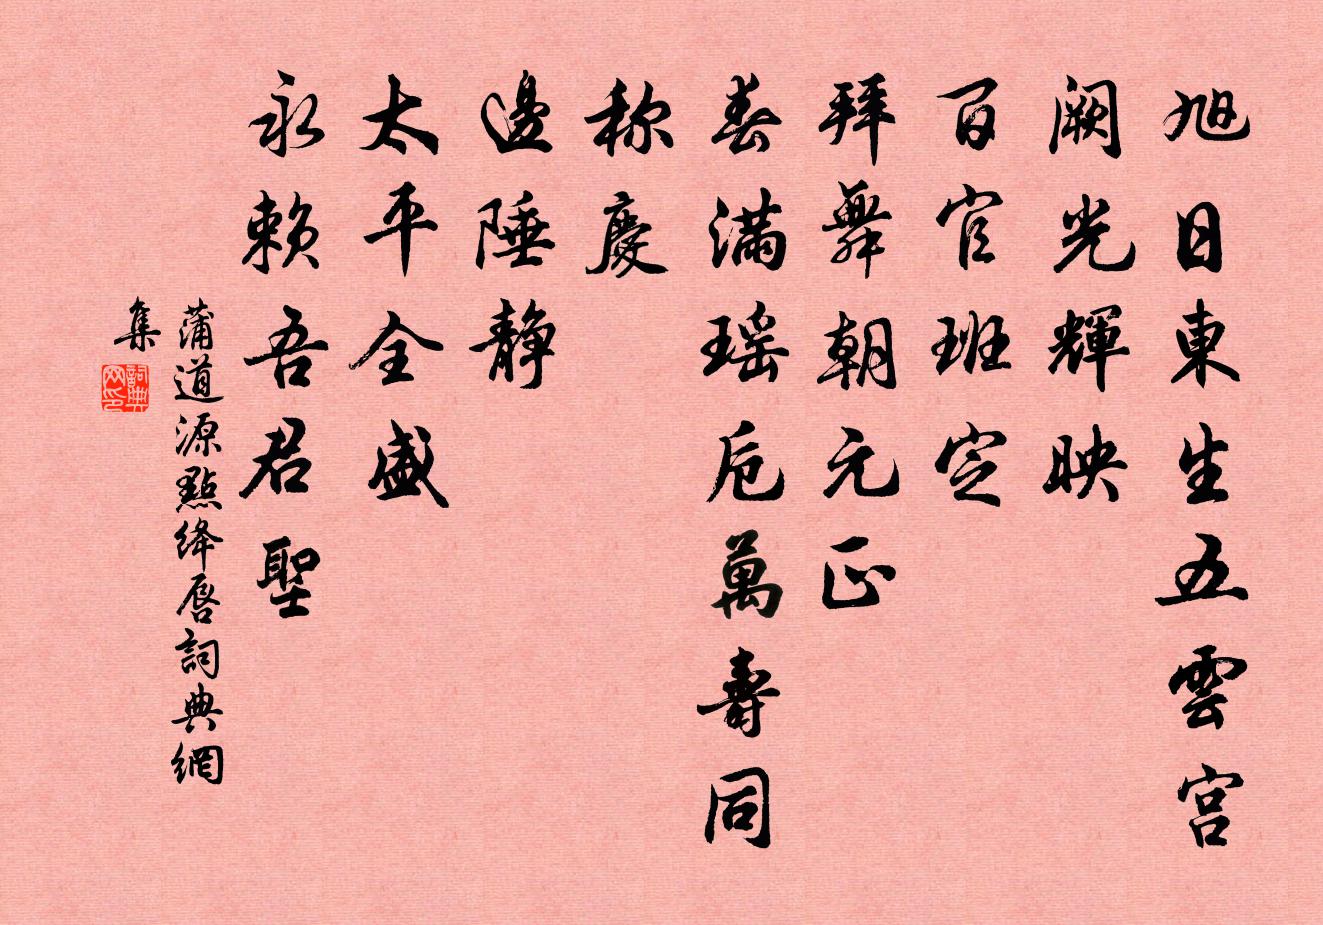 旭日東生五雲宮
闕光輝映
百官班定
拜舞朝元正
春滿瑤卮萬壽同
称慶
邊陲静
太平全盛
永賴吾君聖
蒲道源點絳唇詞典網
集
詞典网印